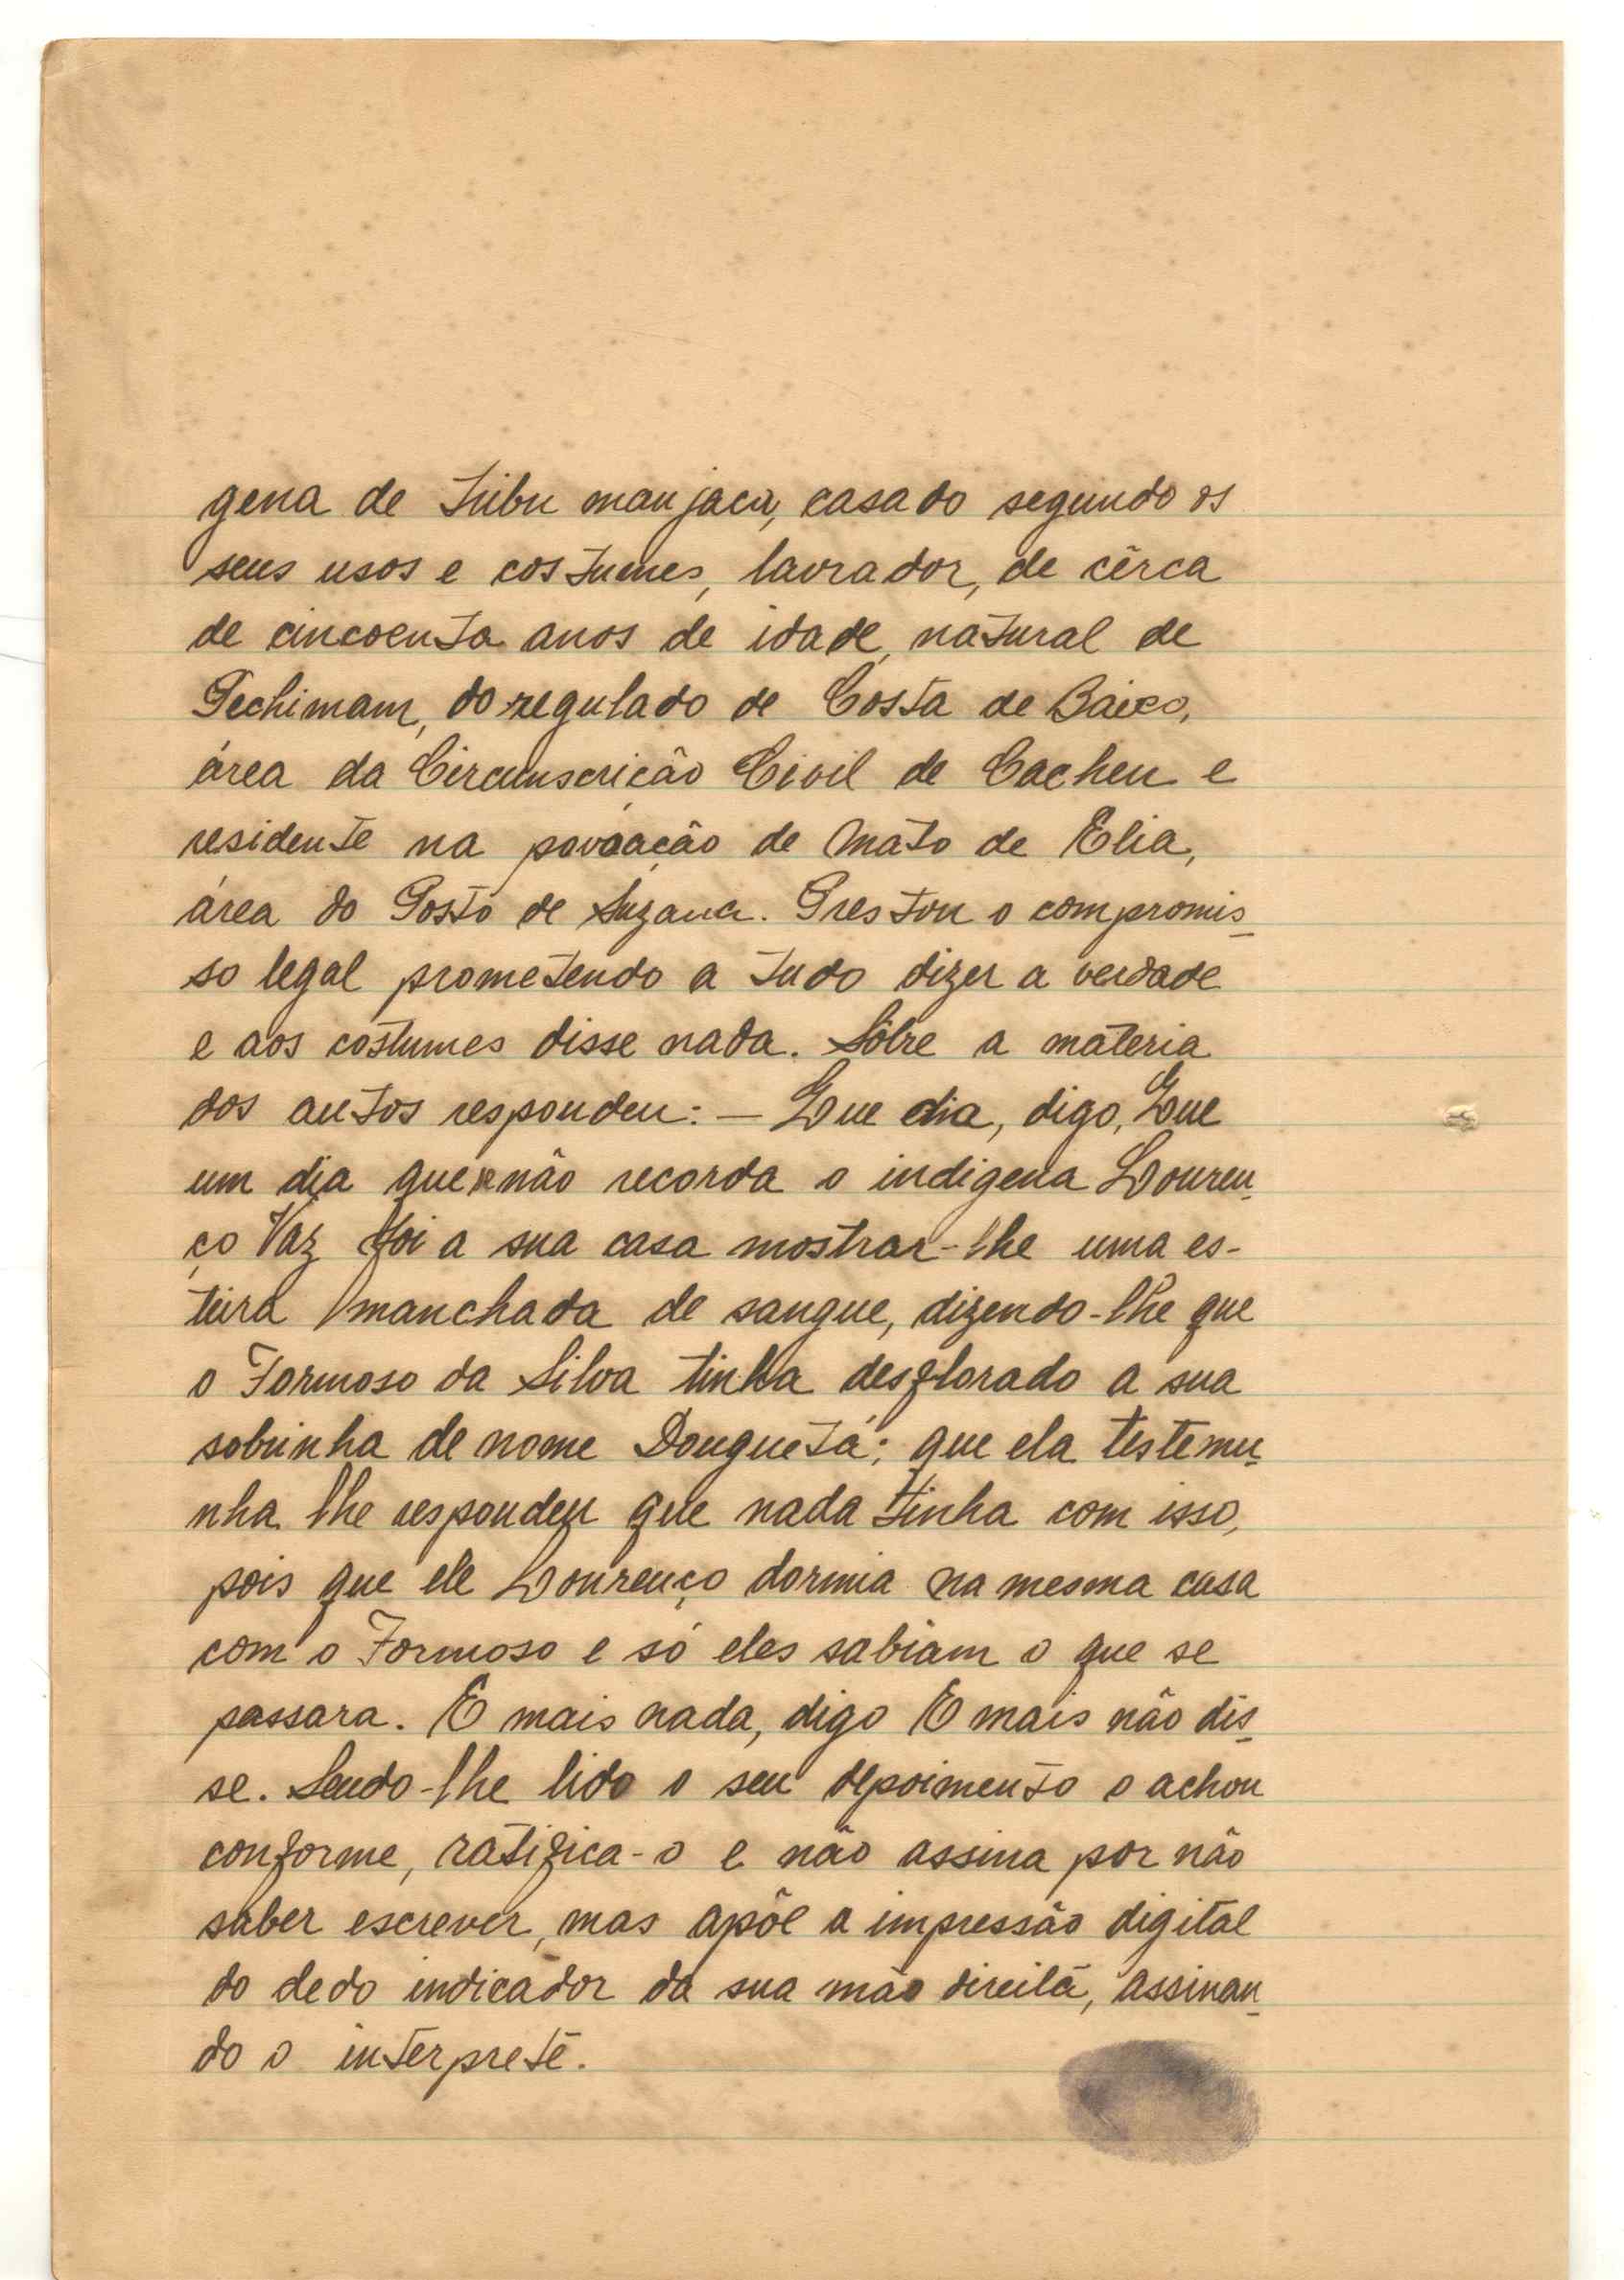 gena de tribu manjaca, casado segundo os
seus usos e costumes, lavrador, de cêrca
de cincoenta anos de idade, natural de
Pechimam, do regulado de Costa de Baixo,
área da Circunscricão Civil de Cacheu e
residente na povoação de Mato de Elia,
área do Posto de Suzana. Prestou o compromis-
so legal prometendo a tudo dizer a verdade
e aos costumes disse nada. Sôbre a materia
dos autos respondeu: — Que dia, digo, Que
um dia que não recorda o indigena Louren-
ço Vaz foi a sua casa mostrar-lhe uma es-
teira manchada de sangue, dizendo-lhe que
o Formoso da Silva tinha desflorado a sua
sobrinha de nome Douguetá; que ela testemu-
nha lhe respondeu que nada tinha com isso,
pois que ele Lourenço dormia na mesma casa
com o Formoso e só eles sabiam o que se
passara. E mais nada, digo E mais não dis-
se. Sendo-lhe lido o seu depoimento o achou
conforme, ratifica-o e não assina por não
saber escrever, mas apõe a impressão digital
do dedo indicador da sua mão direita, assinan-
do o interprete.